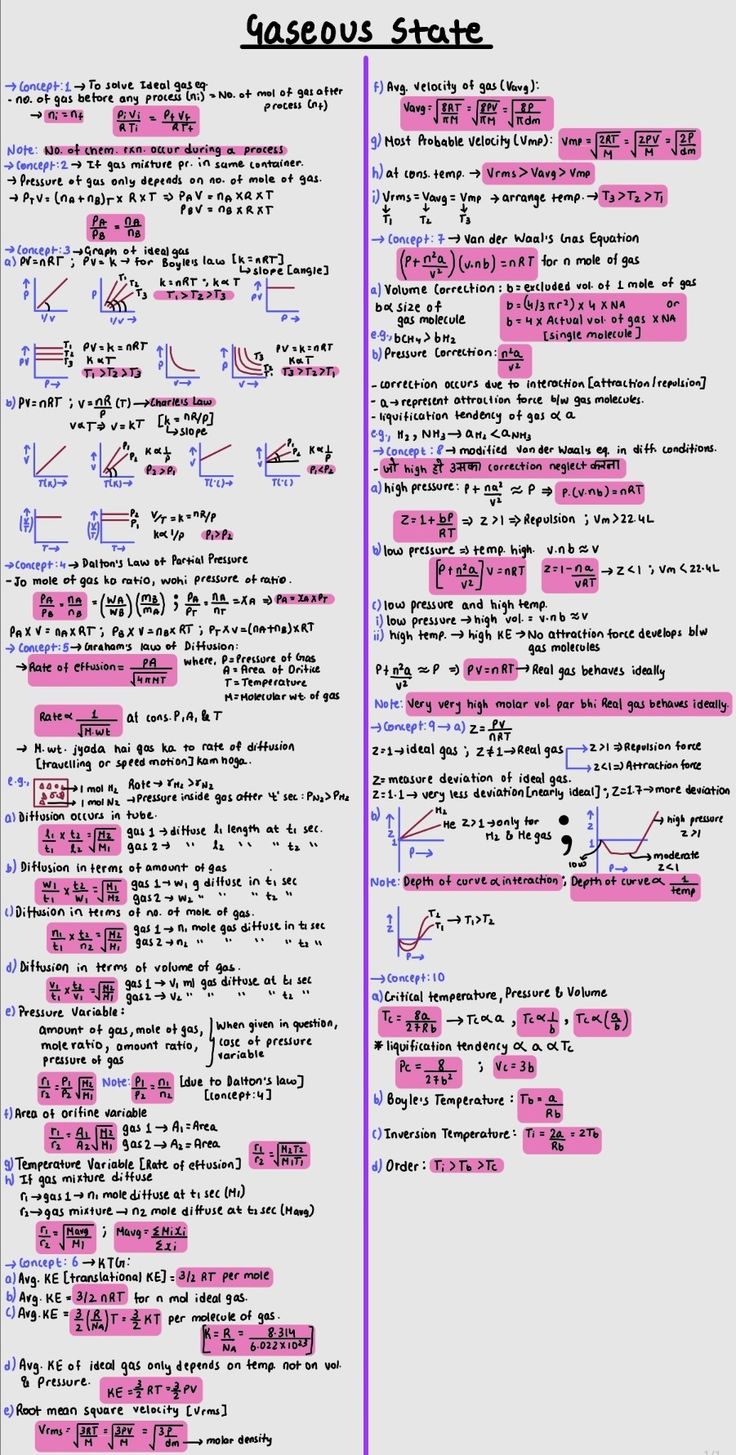 Gaseous State
→ Concept:1 → To solve Ideal gas eq.
- no. of gas before any process (ni) = No. of mol of gas after process (nf)
→ ni = nf PiVi/RTi = PfVf/RTf
Note: No. of chem. rxn. occur during a process
→ Concept:2 → If gas mixture pr. in same container.
→ Pressure of gas only depends on no. of mole of gas.
→ PTV = (nA + nB)T × R × T ⇒ PAV = nA × R × T
PBV = nB × R × T
PA/PB = nA/nB
→ Concept:3 → Graph of ideal gas
a) PV = nRT ; PV = k → for Boyle's law [k = nRT]
↳ slope [angle]
↑ P 1/V →
↑ P 1/V → T1 T2 T3
k = nRT ; k ∝ T
T1 > T2 > T3
↑ PV P →
↑ PV P → T1 T2 T3
PV = k = nRT
k ∝ T
T1 > T2 > T3
↑ P V →
↑ P V → T3 T2 T1
PV = k = nRT
k ∝ T
T3 > T2 > T1
b) PV = nRT ; V = nR/P (T) → Charle's Law
V ∝ T ⇒ V = kT [k = nR/P]
↳ slope
↑ V T(K) →
↑ V T(K) → P1 P2
k ∝ 1/P
P2 > P1
↑ V T(°C) →
↑ V T(°C) P1 P2
k ∝ 1/P
P1 < P2
↑ (V/T) T →
↑ (V/T) T → P2 P1
V/T = k = nR/P
k ∝ 1/P P1 > P2
→ Concept:4 → Dalton's Law of Partial Pressure
- Jo mole of gas ko ratio, wohi pressure of ratio.
PA/PB = nA/nB = (WA/WB)(mB/mA) ; PA/PT = nA/nT = XA ⇒ PA = XA × PT
PA × V = nA × RT ; PB × V = nB × RT ; PT × V = (nA + nB) × RT
→ Concept:5 → Graham's law of Diffusion:
→ Rate of effusion = PA/√4πMT where, P = Pressure of Gas
A = Area of Orifice
T = Temperature
M = Molecular wt. of gas
Rate ∝ 1/√M.wt at cons. P, A, & T
→ M.wt. jyada hai gas ka to rate of diffusion
[travelling or speed motion] kam hoga.
e.g., → 1 mol H2 Rate → rH2 > rN2
→ 1 mol N2 → Pressure inside gas after 't' sec : PN2 > PH2
a) Diffusion occurs in tube.
l1/t1 × t2/l2 = √M2/M1 gas 1 → diffuse l1 length at t1 sec.
gas 2 → " l2 " " t2 "
b) Diffusion in terms of amount of gas
W1/t1 × t2/W2 = √M2/M1 gas 1 → W1 g diffuse in t1 sec
gas 2 → W2 " " " t2 "
c) Diffusion in terms of no. of mole of gas.
n1/t1 × t2/n2 = √M2/M1 gas 1 → n1 mole gas diffuse in t1 sec
gas 2 → n2 " " " t2 "
d) Diffusion in terms of volume of gas.
V1/t1 × t2/V2 = √M2/M1 gas 1 → V1 ml gas diffuse at t1 sec
gas 2 → V2 " " " " t2 "
e) Pressure Variable:
amount of gas, mole of gas,
mole ratio, amount ratio,
pressure of gas
When given in question,
case of pressure
variable
r1/r2 = P1/P2 √M2/M1 Note: P1/P2 = n1/n2 [due to Dalton's law]
[concept:4]
f) Area of orifine variable
r1/r2 = A1/A2 √M2/M1 gas 1 → A1 = Area
gas 2 → A2 = Area
g) Temperature Variable [Rate of effusion] r1/r2 = √M2T2/M1T1
h) If gas mixture diffuse
r1 → gas 1 → n1 mole diffuse at t1 sec (M1)
r2 → gas mixture → n2 mole diffuse at t2 sec (Mavg)
r1/r2 = √Mavg/M1 ; Mavg = ΣMixi/Σxi
→ Concept: 6 → KTG:
a) Avg. KE [translational KE] = 3/2 RT per mole
b) Avg. KE = 3/2 nRT for n mol ideal gas.
c) Avg. KE = 3/2 (R/NA) T = 3/2 KT per molecule of gas.
[K = R/NA = 8.314/6.022×10²³]
d) Avg. KE of ideal gas only depends on temp. not on vol.
& Pressure. KE = 3/2 RT = 3/2 PV
e) Root mean square velocity [Vrms]
Vrms = √3RT/M = √3PV/M = √3P/dm → molar density
f) Avg. velocity of gas (Vavg):
Vavg = √8RT/πM = √8PV/πM = √8P/πdm
g) Most Probable Velocity (Vmp): Vmp = √2RT/M = √2PV/M = √2P/dm
h) at cons. temp. → Vrms > Vavg > Vmp
i) Vrms = Vavg = Vmp → arrange temp. → T3 > T2 > T1
↓ ↓ ↓
T1 T2 T3
→ Concept: 7 → Van der Waal's Gas Equation
(P + n²a/V²)(V-nb) = nRT for n mole of gas
a) Volume Correction : b = excluded vol. of 1 mole of gas
b ∝ size of
gas molecule
b = (4/3 πr²) × 4 × NA or
b = 4 × Actual vol. of gas × NA
[single molecule]
e.g., bCH4 > bH2
b) Pressure Correction: n²a/V²
- correction occurs due to interaction [attraction/repulsion]
- a → represent attraction force b/w gas molecules.
- liquification tendency of gas ∝ a
e.g., H2, NH3 → aH2 < aNH3
→ Concept: 8 → modified Van der Waal's eq. in diff. conditions.
- जो high हो उसका correction neglect करना
a) high pressure: P + na²/V² ≈ P ⇒ P.(V-nb) = nRT
Z = 1 + bP/RT ⇒ Z > 1 ⇒ Repulsion ; Vm > 22.4L
b) low pressure ⇒ temp. high. V-nb ≈ V
[P + n²a/V²] V = nRT Z = 1 - na/VRT → Z < 1 ; Vm < 22.4L
c) low pressure and high temp.
i) low pressure → high vol. = V-nb ≈ V
ii) high temp. → high KE → No attraction force develops b/w
gas molecules
P + n²a/V² ≈ P ⇒ PV = nRT → Real gas behaves ideally
Note: Very very high molar vol. par bhi Real gas behaves ideally.
→ Concept: 9 → a) Z = PV/nRT
Z = 1 → ideal gas ; Z ≠ 1 → Real gas → Z > 1 ⇒ Repulsion force
→ Z < 1 ⇒ Attraction force
Z = measure deviation of ideal gas.
Z = 1.1 → very less deviation [nearly ideal] ; Z = 1.7 → more deviation
b) ↑ Z 1 P → H2 He Z > 1 → only for
H2 & He gas
;
↑ Z 1 P → low
high pressure
Z > 1
moderate
Z < 1
Note: Depth of curve ∝ interaction ; Depth of curve ∝ 1/temp
↑ Z P → T2 T1 → T1 > T2
→ Concept: 10
a) Critical temperature, Pressure & Volume
Tc = 8a/27Rb → Tc ∝ a , Tc ∝ 1/b , Tc ∝ (a/b)
* liquification tendency ∝ a ∝ Tc
Pc = 8/27b² ; Vc = 3b
b) Boyle's Temperature : Tb = a/Rb
c) Inversion Temperature : Ti = 2a/Rb = 2Tb
d) Order : Ti > Tb > Tc